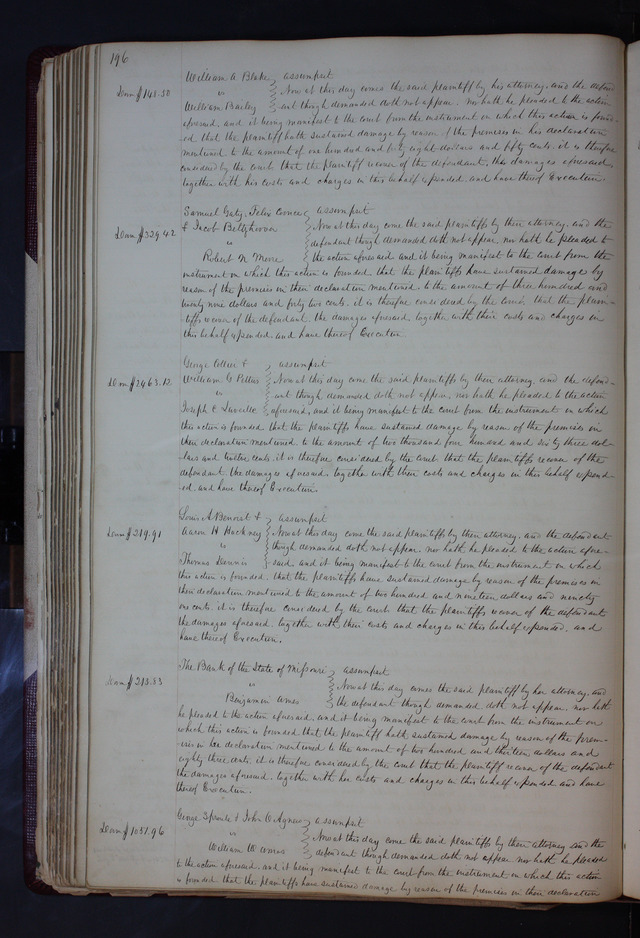 196
William A Blake } assumpsit
Dam $148.50 vs } Now at this day comes the said plaintiff by his attorney, and the defend-
William Bailey } ant though demanded doth not appear, nor hath he pleaded to the action
aforesaid, and it being manifest to the court from the instrument on which this action is found-
ed that the plaintiff hath sustained damage by reason of the premises in his declaration
mentioned to the amount of one hundred and forty eight dollars and fifty cents, it is therefore
considered by the court that the plaintiff recover of the defendant, the damages aforesaid
together with his costs and charges in this behalf expended, and have thereof Execution
Samuel Gaty, Felix } assumpsit
& Jacob Beltzhoover } Now at this day come the said plaintiffs by their attorney, and the
Dam $329.42 vs } defendant though demanded doth not appear, nor hath he pleaded to
Robert N Moore } the action aforesaid and it being manifest to the court from the
instrument on which this action is founded that the plaintiffs have sustained damage by
reason of the premises in their declaration mentioned to the amount of three hundred and
twenty nine dollars and forty two cents, it is therefore considered by the court that the plain-
tiffs recover of the defendant the damages aforesaid together with their costs and charges in
this behalf expended and have thereof Execution
George Collier & } assumpsit
Dam $2463.12 William G Pettus } Now at this day come the said plaintiffs by their attorney, and the defend-
vs } ant though demanded doth not appear, nor hath he pleaded to the action
Joseph C } aforesaid, and it being manifest to the court from the instrument on which
this action is founded that the plaintiffs have sustained damage by reason of the premises in
their declaration mentioned to the amount of two thousand four hundred and sixty three dol-
lars and twelve cents, it is therefore considered by the court that the plaintiffs recover of the
defendant the damages aforesaid, together with their costs and charges in this behalf expend-
ed and have thereof Execution.
Louis A Benoist & } assumpsit
Dam $219.91 Aaron H Hackney } Now at this day come the said plaintiffs by their attorney, and the defendant
vs } though demanded doth not appear, nor hath he pleaded to the action afore-
Thomas } said and it being manifest to the court from the instrument on which
this action is founded, that the plaintiffs have sustained damage by reason of the premises in
their declaration mentioned to the amount of two hundred and nineteen dollars and ninety
one cents, it is therefore considered by the court that the plaintiffs recover of the defendant
the damages aforesaid, together with their costs and charges in this behalf expended, and
have thereof Execution.
The Bank of the State of Missouri } assumpsit
Dam $213.83 vs } Now at this day comes the said plaintiff by her attorney, and
Benjamin Ames } the defendant though demanded doth not appear, nor hath
he pleaded to the action aforesaid, and it being manifest to the court from the instrument on
which this action is founded that the plaintiff hath sustained damage by reason of the prem-
ises in her declaration mentioned to the amount of two hundred and thirteen dollars and
eighty three cents it is therefore considered by the court that the plaintiff recover of the defendant
the damages aforesaid, together with her costs and charges in this behalf expended and have
thereof Execution.
George Sproule & John C Agnew } assumpsit
Dam $1051.96 vs } Now at this day come the said plaintiffs by their attorney and the
William W Ames } defendant though demanded doth not appear nor hath he pleaded
to the action aforesaid, and it being manifest to the court from the instrument on which this action
is founded that the plaintiffs have sustained damage by reason of the premises in their declaration